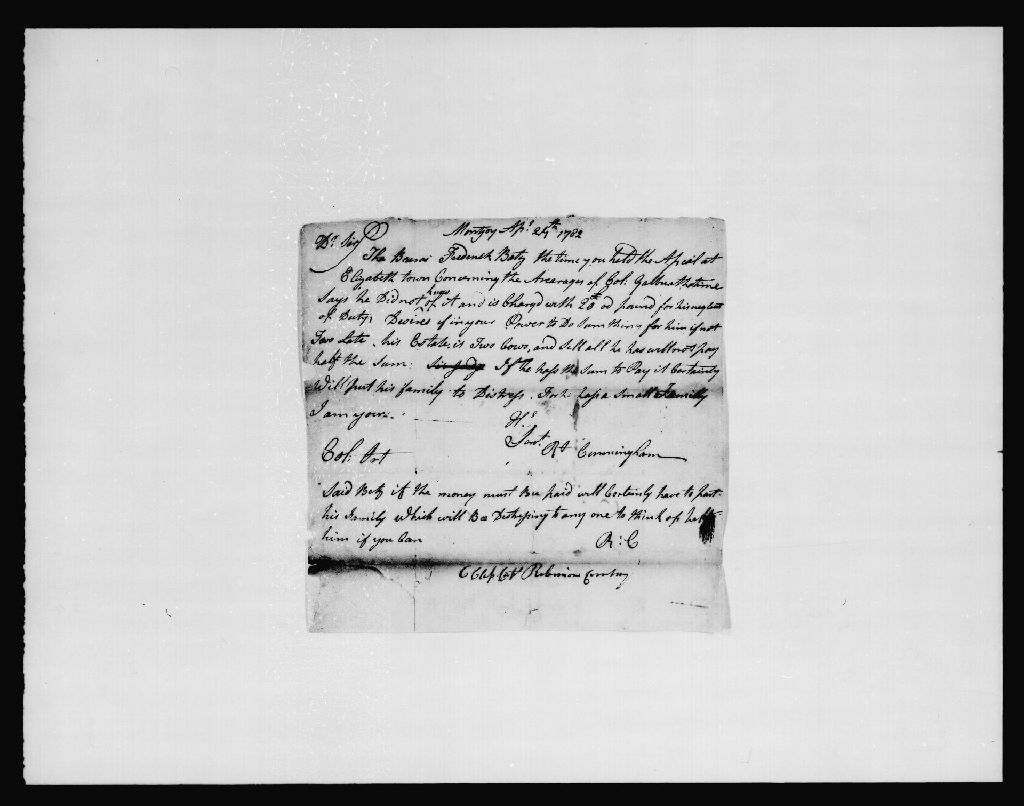 Montgoy Apl. 24th 1782
Dr. Sir
The Bearer Frederick Betz the time you held the Apeal at
Elizabeth town Concerning the Arearages of Col.
Says he Did not hear of it and is Charg'd with 28 od pound for his neglect
of Duty; Desires if in your Power to Do Som thing for him if not
Two Late. his Estate is Two Cows, and Sell all he has will not pay
half the Sum: If he hass the Sum to Pay it Certainly
Will put his family to Distress. For he hass a Small Family
I am yours
Hl.
Servt.
Rt Cunningham
Col:
Said Betz if the money must Bee paid will Certainly have to part
his Family Which will Be Distressing to any one to think of help
him if you Can
R: C
Capt Robinsons